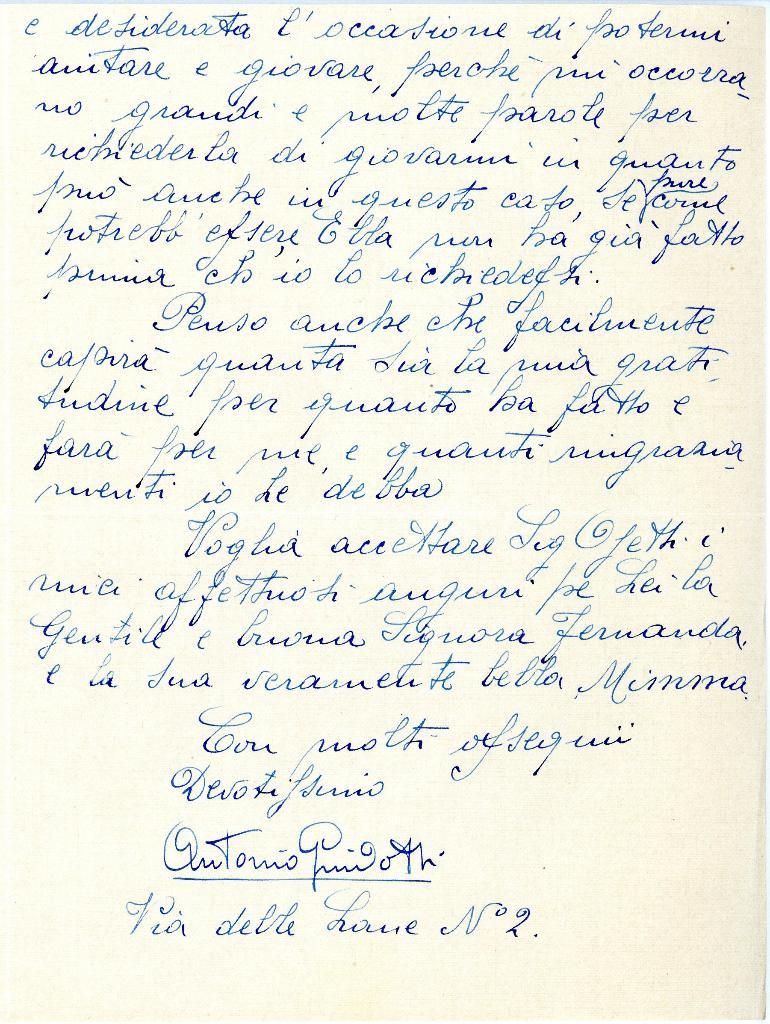 e desiderata l'occasione di potermi
aiutare e giovare, perchè mi occorra-
no grandi e molte parole per
richiederla di giovarmi in quanto
può anche in questo caso, se pure, come
potrebb'essere, Ella non ha già fatto
prima ch'io lo richiedessi.
Penso anche che facilmente
capirà quanta sia la mia grati-
tudine per quanto ha fatto e
farà per me, e quanti ringrazia-
menti io Le debba
Voglia accettare Sig Ojetti i
miei affettuosi auguri pe Lei la
Gentile e buona Signora Fernanda,
e la sua veramente bella Mimma.
Con molti ossequii
Devotissimo
Antonio Guidotti
Via delle Lane Nº 2.